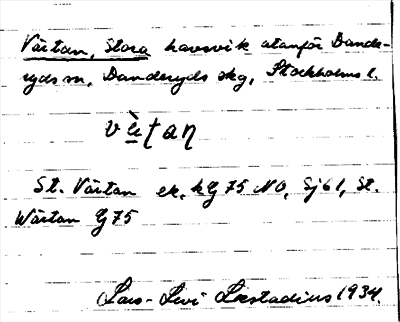 Värtan, Stora havsvik utanför Dande-
ryds sn, Danderyds skg, Stockholms l.
St. Värtan ek. kG 75 NO, Sj 61, St.
Wärtan G 75
Lars-Levi Læstadius 1934.